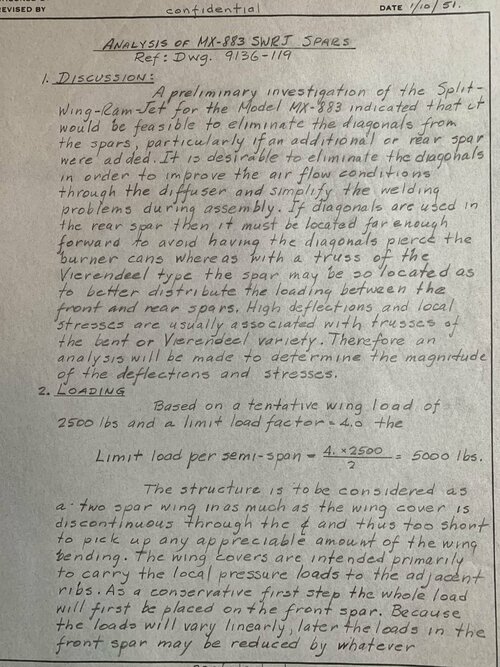 REVISED BY confidential DATE 1/10/51.
ANALYSIS OF MX-883 SWRJ SPARS
Ref: Dwg. 9136-119
1. DISCUSSION:
A preliminary investigation of the Split-
Wing-Ram-Jet for the Model MX-883 indicated that it
would be feasible to eliminate the diagonals from
the spars, particularly if an additional or rear spar
were added. It is desirable to eliminate the diagonals
in order to improve the air flow conditions
through the diffuser and simplify the welding
problems during assembly. If diagonals are used in
the rear spar then it must be located far enough
forward to avoid having the diagonals pierce the
burner cans whereas with a truss of the
Vierendeel type the spar may be so located as
to better distribute the loading between the
front and rear spars. High deflections and local
stresses are usually associated with trusses of
the bent or Vierendeel variety. Therefore an
analysis will be made to determine the magnitude
of the deflections and stresses.
2. LOADING
Based on a tentative wing load of
2500 lbs and a limit load factor = 4.0 the
Limit load per semi-span = 4. x 2500 / 2 = 5000 lbs.
The structure is to be considered as
a two spar wing in as much as the wing cover is
discontinuous through the ℄ and thus too short
to pick up any appreciable amount of the wing
bending. The wing covers are intended primarily
to carry the local pressure loads to the adjacent
ribs. As a conservative first step the whole load
will first be placed on the front spar. Because
the loads will vary linearly, later the loads in the
front spar may be reduced by whatever